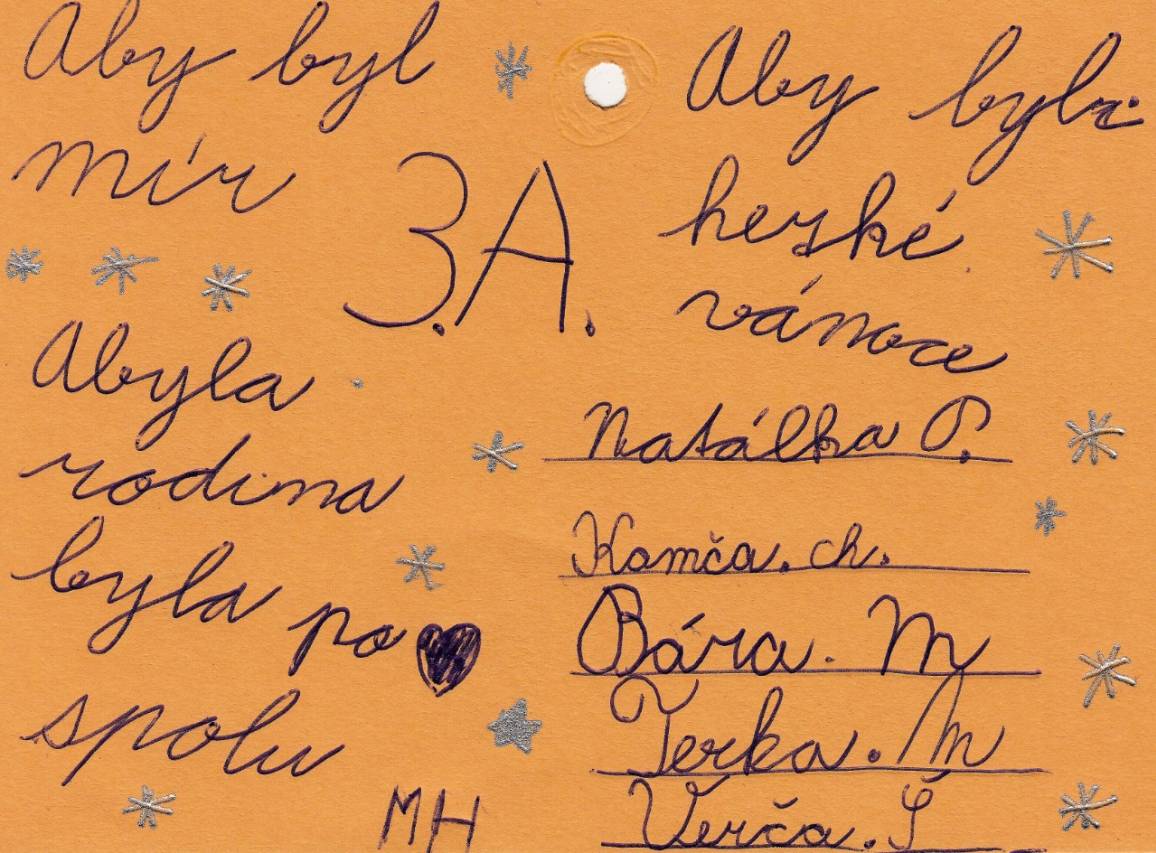 Aby byl
mír
3.A.
Aby byly
heské
vánoce
Abyla
rodina
byla po
spolu
Natálka P.
Kamča. ch.
Bára. M
Terka. M
Verča. Š
MH